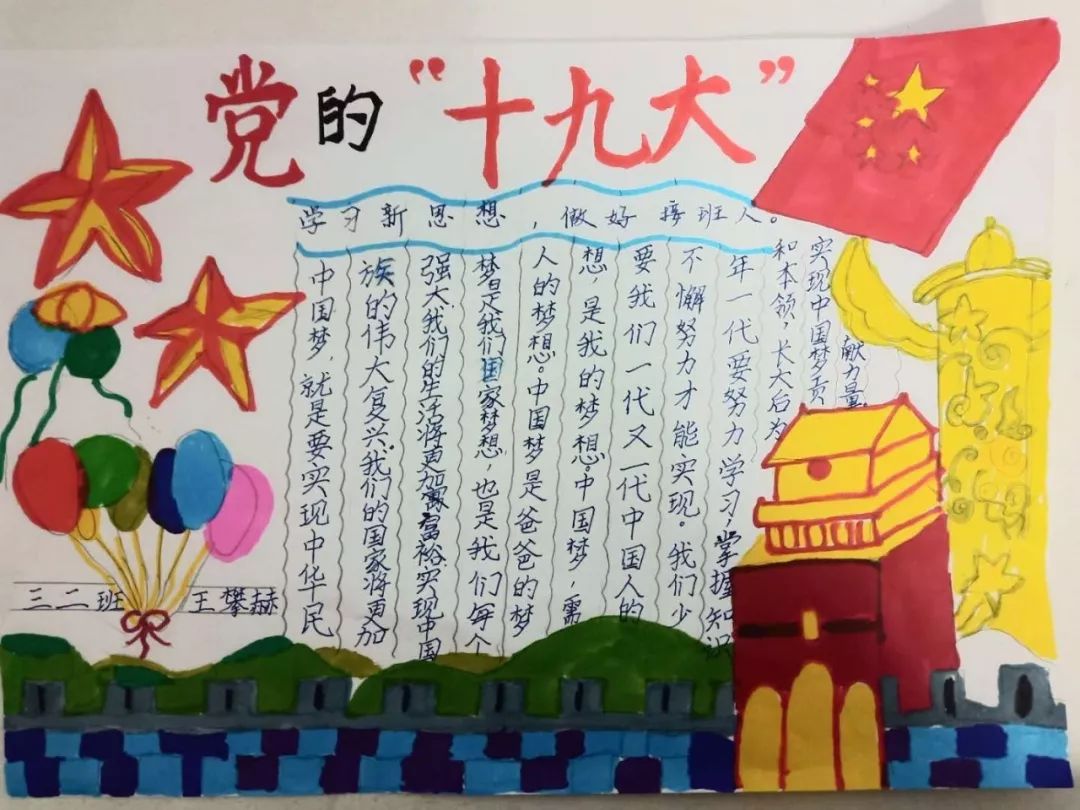 党的“十九大”
学习新思想，做好接班人。
中国梦，就是要实现中华民
族的伟大复兴。我们的国家将更加
强大，我们的生活将更加富裕实现中国
梦是我们国家梦想，也是我们每个
人的梦想。中国梦是爸爸的梦
想，是我的梦想。中国梦，需
要我们一代又一代中国人的
不懈努力才能实现。我们少
年一代要努力学习，掌握知识
和本领，长大后为
实现中国梦贡
献力量
三二班 王攀赫